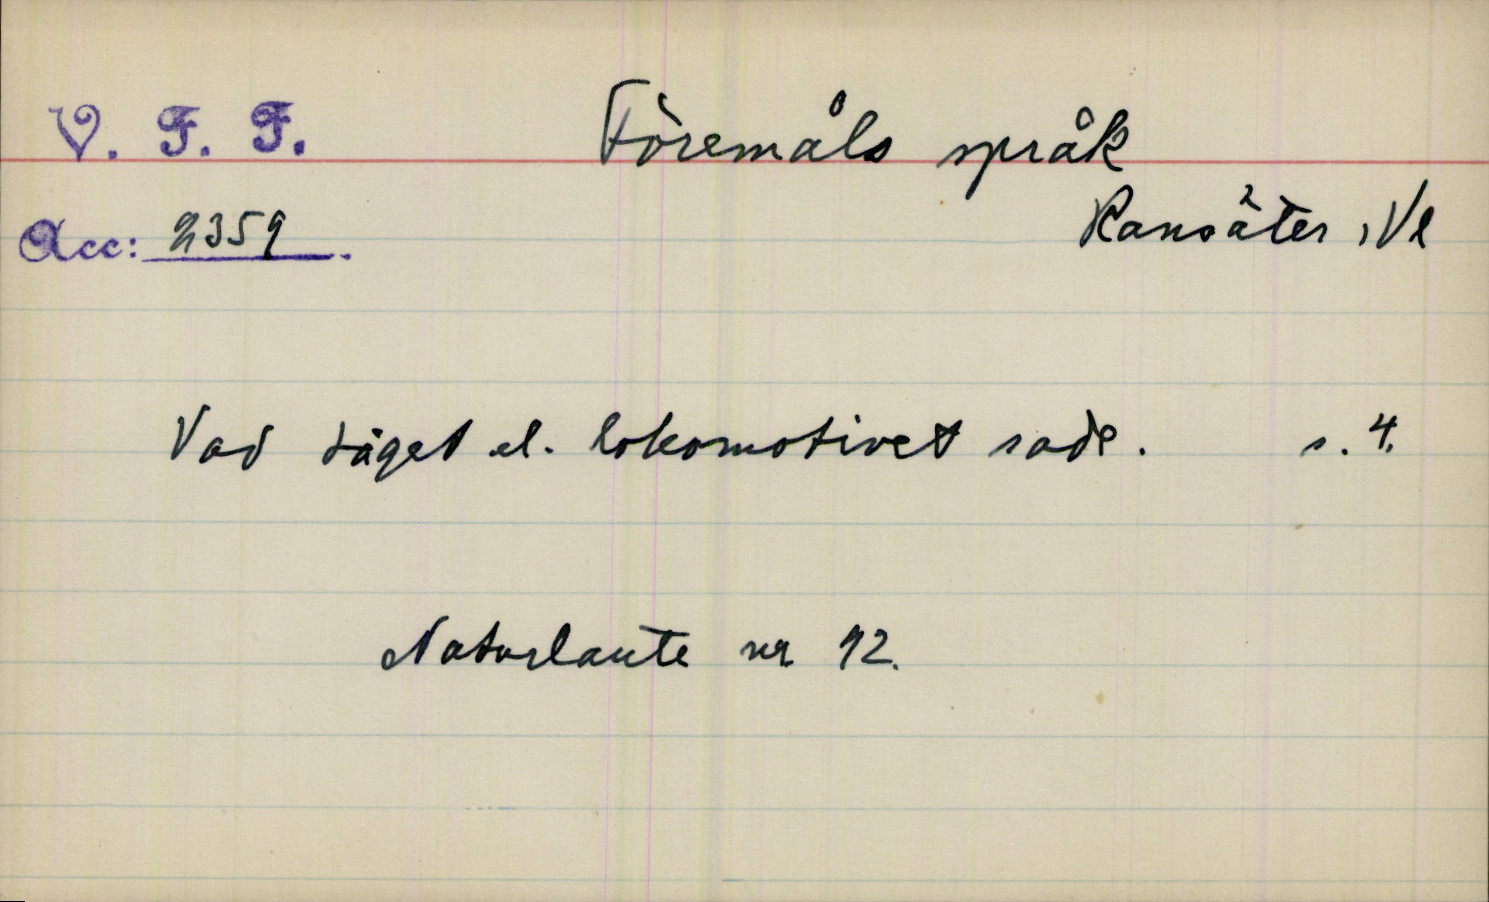 V. F. F. Föremåls språk
Acc: 2359. Ransäter, Vl
Vad tåget el. lokomotivet sade. s. 4.
Naturlaute nr 12.